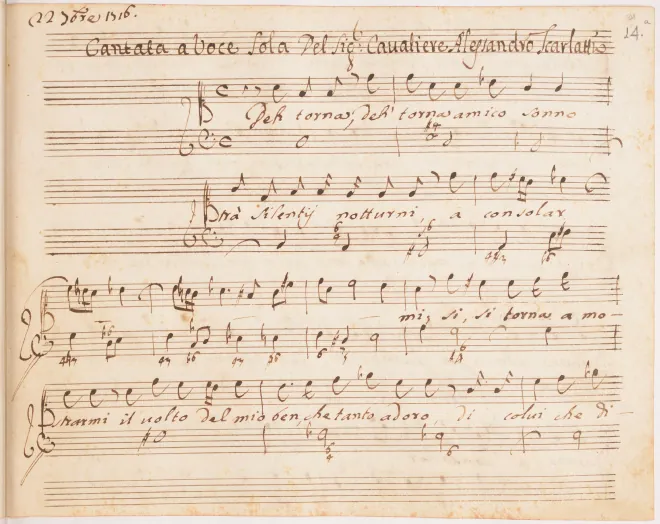 22 7bre 1716.
14.a
Cantata a Voce Sola Del Sigr. Cavaliere Alessandro Scarlatti
Deh torna, deh torna amico sonno
trà silentij notturni, a consolar
mi, si, si torna a mo-
strarmi il volto del mio ben, che tanto adoro, di colui che di-